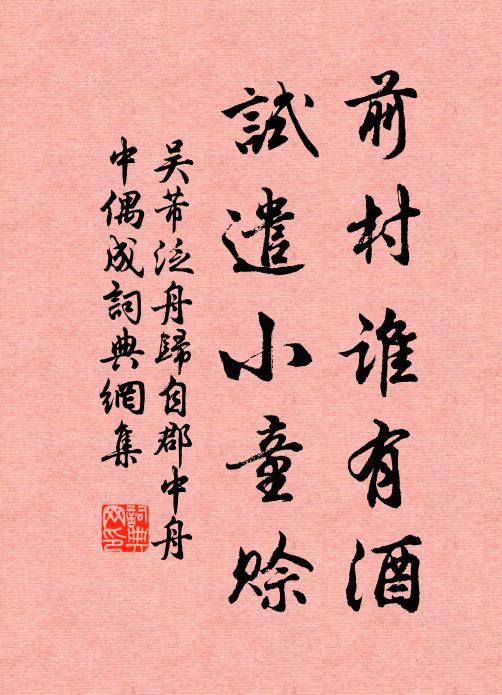 前村誰有酒
試遣小童賒
吴芾泛舟歸自郡中舟
中偶成詞典網集
詞典网印